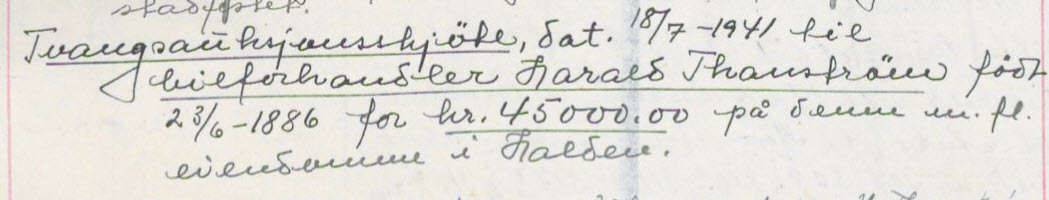 stadfestet.
Tvangsauksjonsskjöte, dat. 18/7-1941 til
bilforhandler Harald Thanström född
23/6-1886 for kr. 45000.00 på denne m. fl.
eiendomme i Halden.